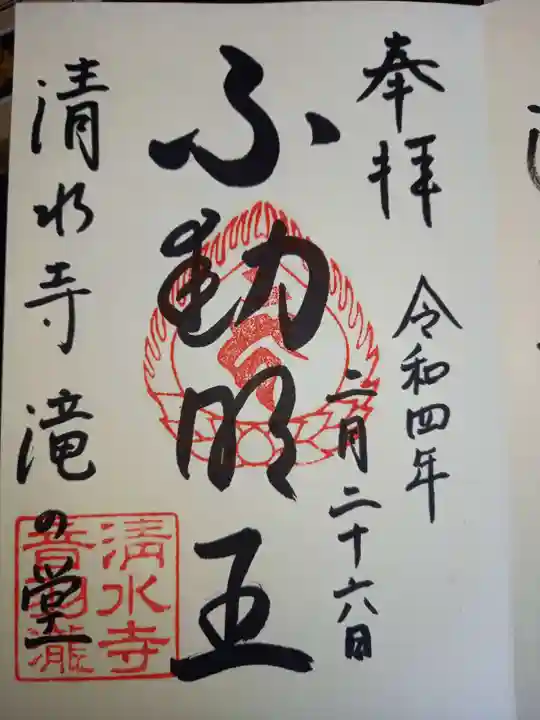 奉拝
令和四年
二月二十六日
不動明王
清水寺滝の堂
清水寺
音羽瀧